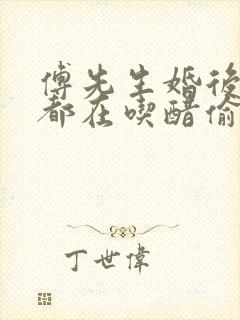 傅先生婚後
都在喫醋偷
丁世偉